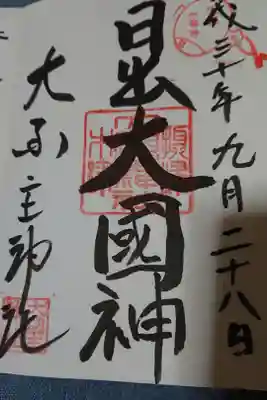 成三十年九月二十八日
日出大國神
大国主神社